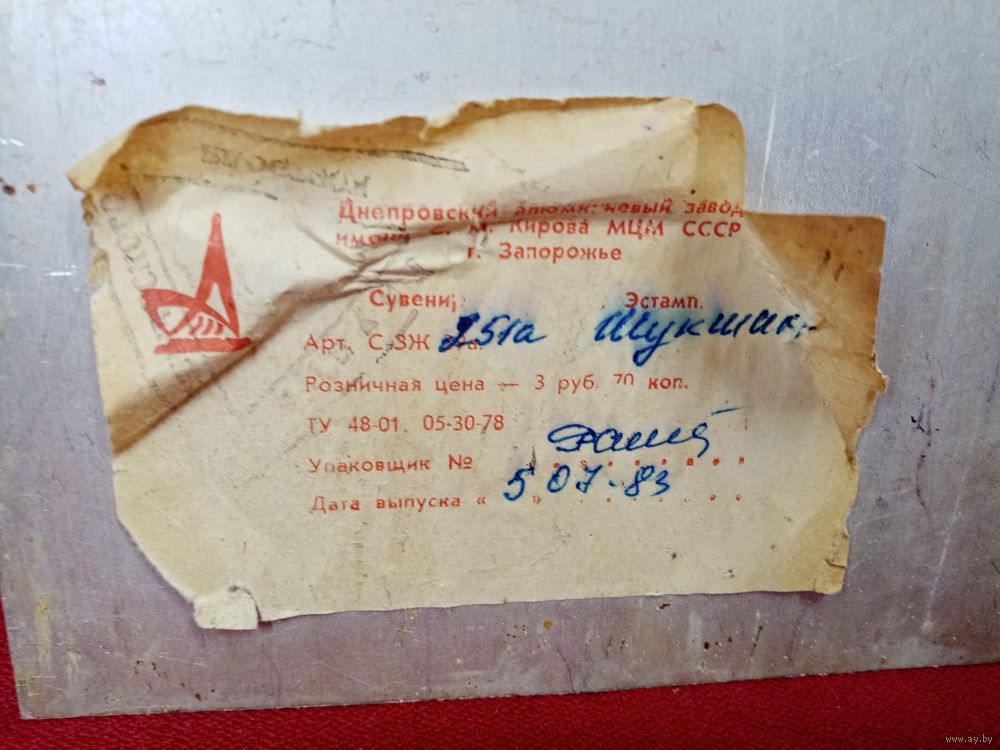 Днепровский алюминиевый завод
имени С. М. Кирова МЦМ СССР
г. Запорожье
Сувенир Эстамп.
Арт. С-ЗЖ 251а Шукшин
Розничная цена — 3 руб. 70 коп.
ТУ 48-01. 05-30-78
Упаковщик №
Дата выпуска « 5 » 07-83
www.ay.by